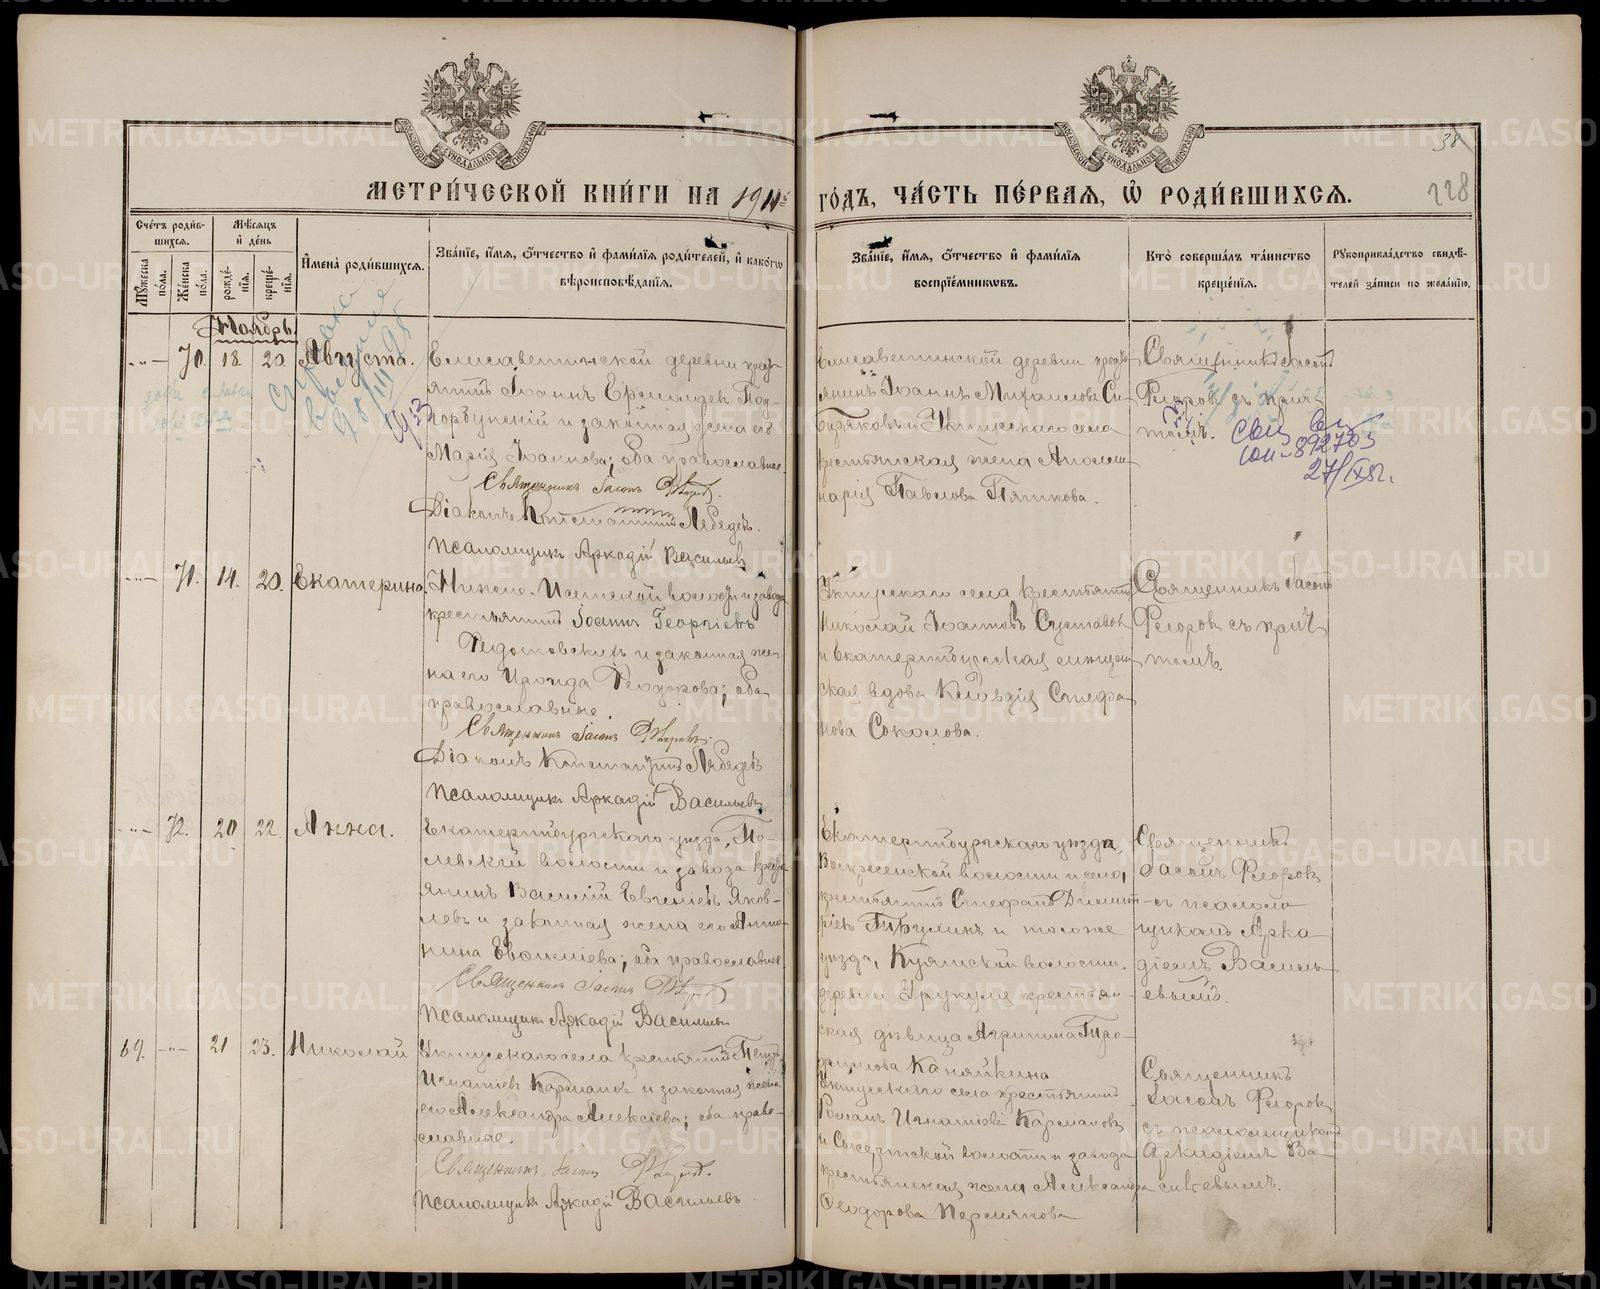 МЕТРИ́ЧЕСКОЙ КНИ́ГИ НА 1911й ГО́ДЪ, ЧА́СТЬ ПЕ́РВАЯ, Ѡ РОДИ́ВШИХСЯ.
38
228
Сче́тъ роди́в-
шихся.
Мѣ́сяцъ
и день
Мꙋжеска
по́ла.
Же́нска
по́ла.
рожде́-
нїя.
креще́-
нїя.
Имена̀ роди́вшихся.
Зва́нїе, и́мя, о́тчество и фами́лїя роди́телей, и како́гѡ
вѣроисповѣ́данїя.
Зва́нїе, и́мя, о́тчество и фами́лїя
воспрїе́мниковъ.
Кто̀ соверша́лъ та́инство
креще́нїя.
Рꙋкоприкла́дство свидѣ́-
телей за́писи по жела́нїю.
Ноябрь.
70. 18. 20. Августа.
Елисаветинской деревни крестъ-
янинъ Іоаннъ
горбунскій и законная жена его
Марія Іоаннова; оба православные.
Священникъ Іасонъ
Діаконъ Константинъ Лебедевъ.
Псаломщикъ Аркадій Васильевъ
Елисаветинской деревни кресть-
янинъ Іоаннъ Михаиловъ Си-
биряковъ и Уктусскаго села
крестьянская жена Аполли-
нарія Павлова Пяткова.
Священникъ Іасонъ
Флоровъ съ прич-
томъ.
892703
27/IX
71. 14. 20. Екатерина.
Нижне-Исетской волости и завода
крестьянинъ Іоаннъ Георгіевъ
Федотовскихъ и законная же-
на его Ироида Ѳеодорова; оба
православные.
Священникъ Іасонъ Флоровъ.
Діаконъ Константинъ Лебедевъ
Псаломщикъ Аркадій Васильевъ
Уктусскаго села крестьянинъ
Николай Іоанновъ Суставовъ
и Екатеринбургская мѣщан-
ская вдова Клавдія Стефа-
нова Соколова.
Священникъ Іасонъ
Флоровъ съ прич-
томъ.
72. 20 22 Анна.
Екатеринбургскаго уѣзда, По-
левской волости и завода кресть-
янинъ Василій Евгеніевъ Яков-
левъ и законная жена его Анто-
нина Евфиміева; оба православные
Священникъ Іасонъ
Псаломщикъ Аркадій Васильевъ
Екатеринбургскаго уѣзда,
Воскресенской волости и села,
крестьянинъ Стефанъ Димит-
ріевъ и того же
уѣзда, Куяшской волости,
деревни крестьян-
ская дѣвица Агрипина
Каняйкина
Священникъ
Іасонъ Флоровъ
съ псалом-
щикомъ Арка-
діемъ Василь-
евымъ.
69. 21 23. Николай
Уктусскаго села крестьянинъ Петръ
Игнатіевъ Кармановъ и законная жена
его Александра Алексіева; оба право-
славные.
Священникъ Іасонъ
Псаломщикъ Аркадій Васильевъ
Уктусскаго села крестьянинъ
Романъ Игнатіевъ Кармановъ
и Сысертской волости и завода
крестьянская жена Александра
Ѳеодорова Пермякова
Священникъ
Іасонъ Флоровъ
съ псаломщикомъ
Аркадіемъ Ва-
сильевымъ.
METRIKI.GASO-URAL.RU